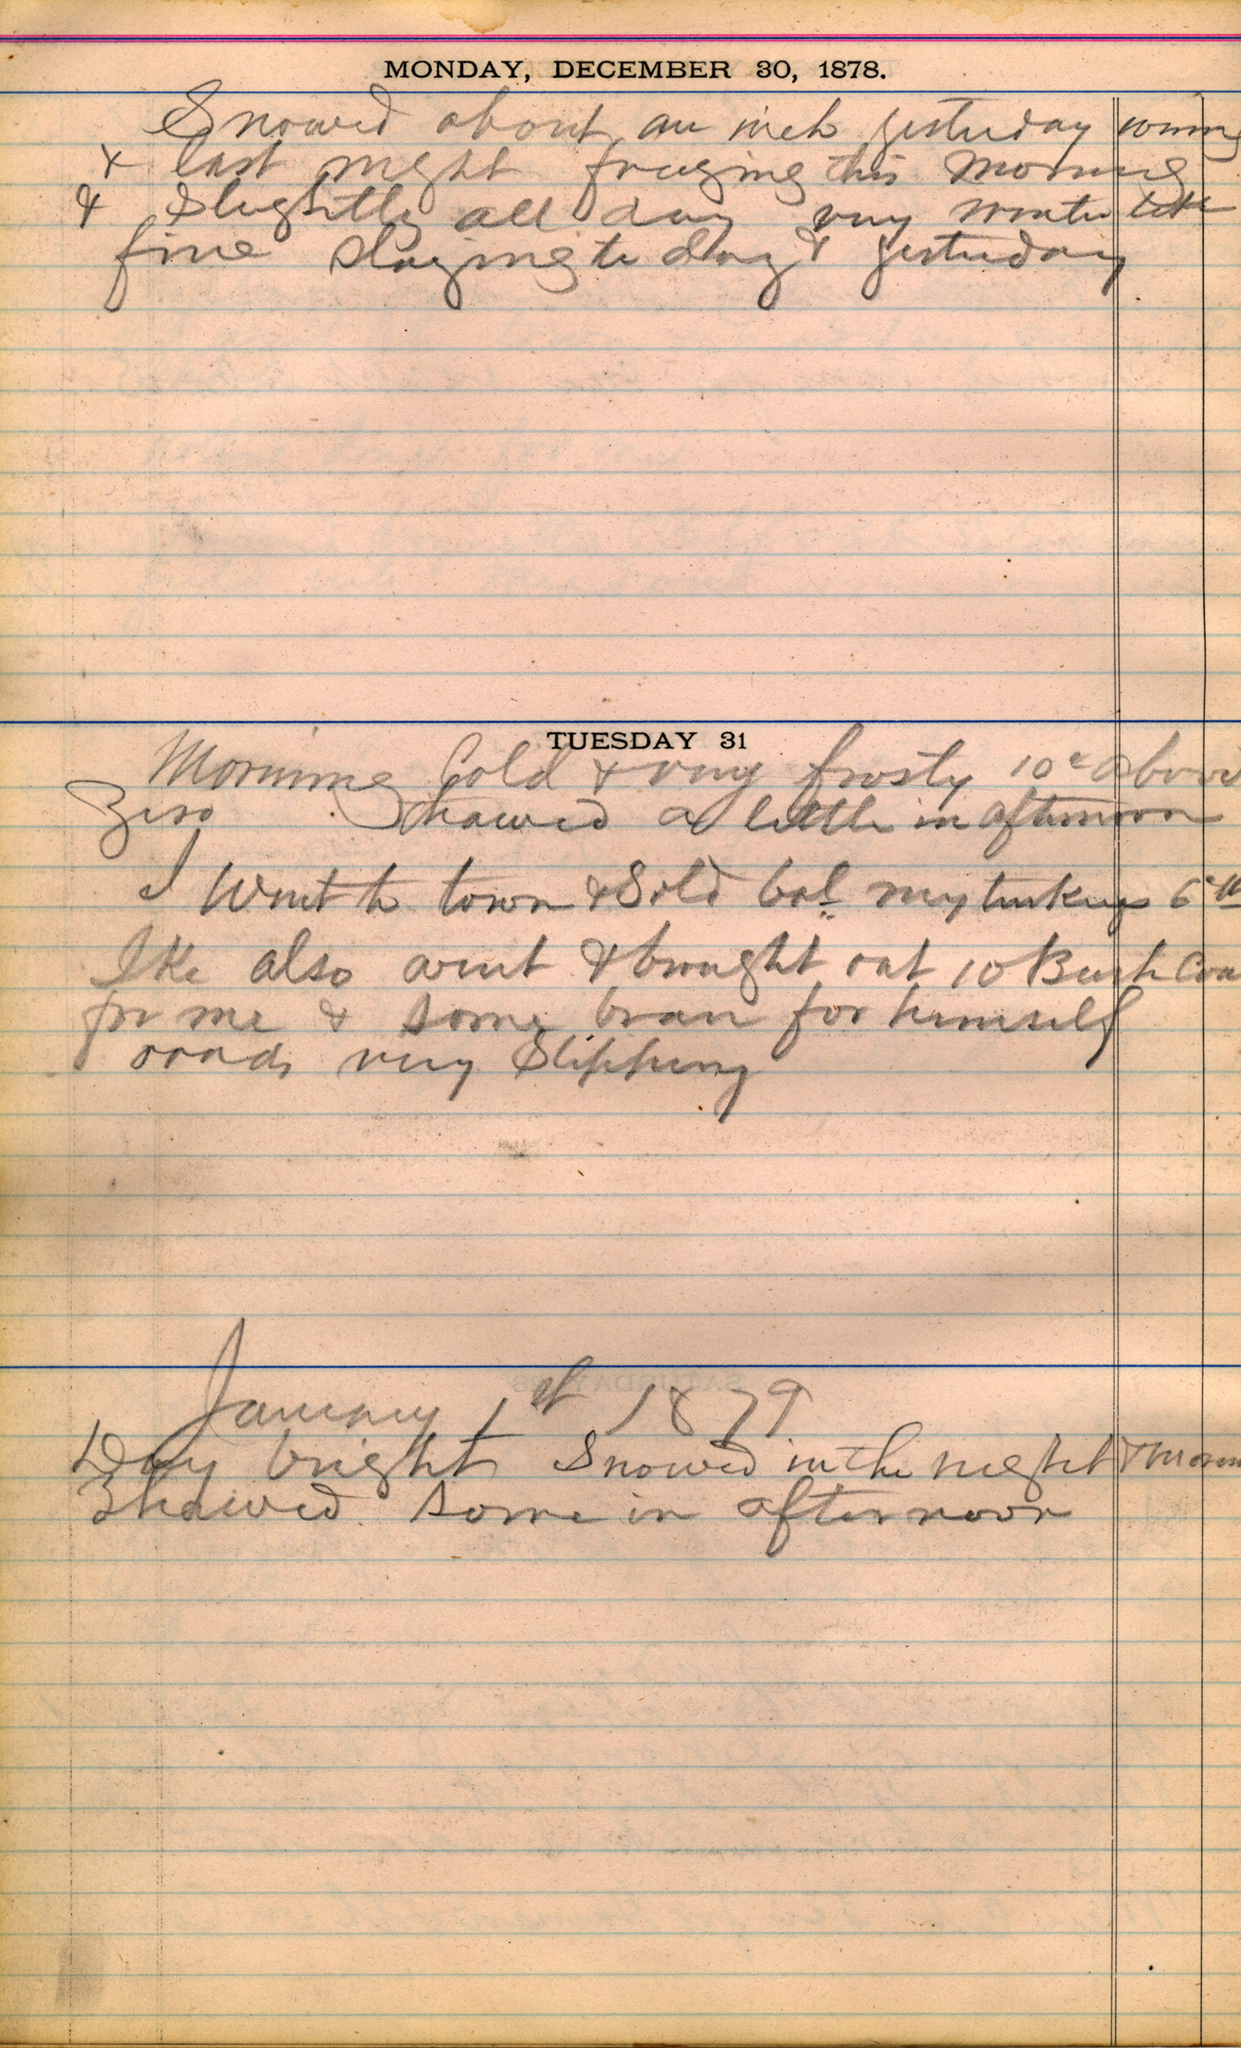 MONDAY, DECEMBER 30, 1878.
Snowed about an inch yesterday
& last night freezing this morning
& slightly all day very winter like
fine slaying to day & yesterday
TUESDAY 31
Morning Cold & very frosty 10° above
Zero Thawed a little in afternoon
I went to town & Sold bal. my turkeys 6c
Ike also went & brought out 10 Bush Coal
for me & some bran for himself
roads very Slippery
January 1st 1879
Day bright Snowed in the night & morn
Thawed some in afternoon